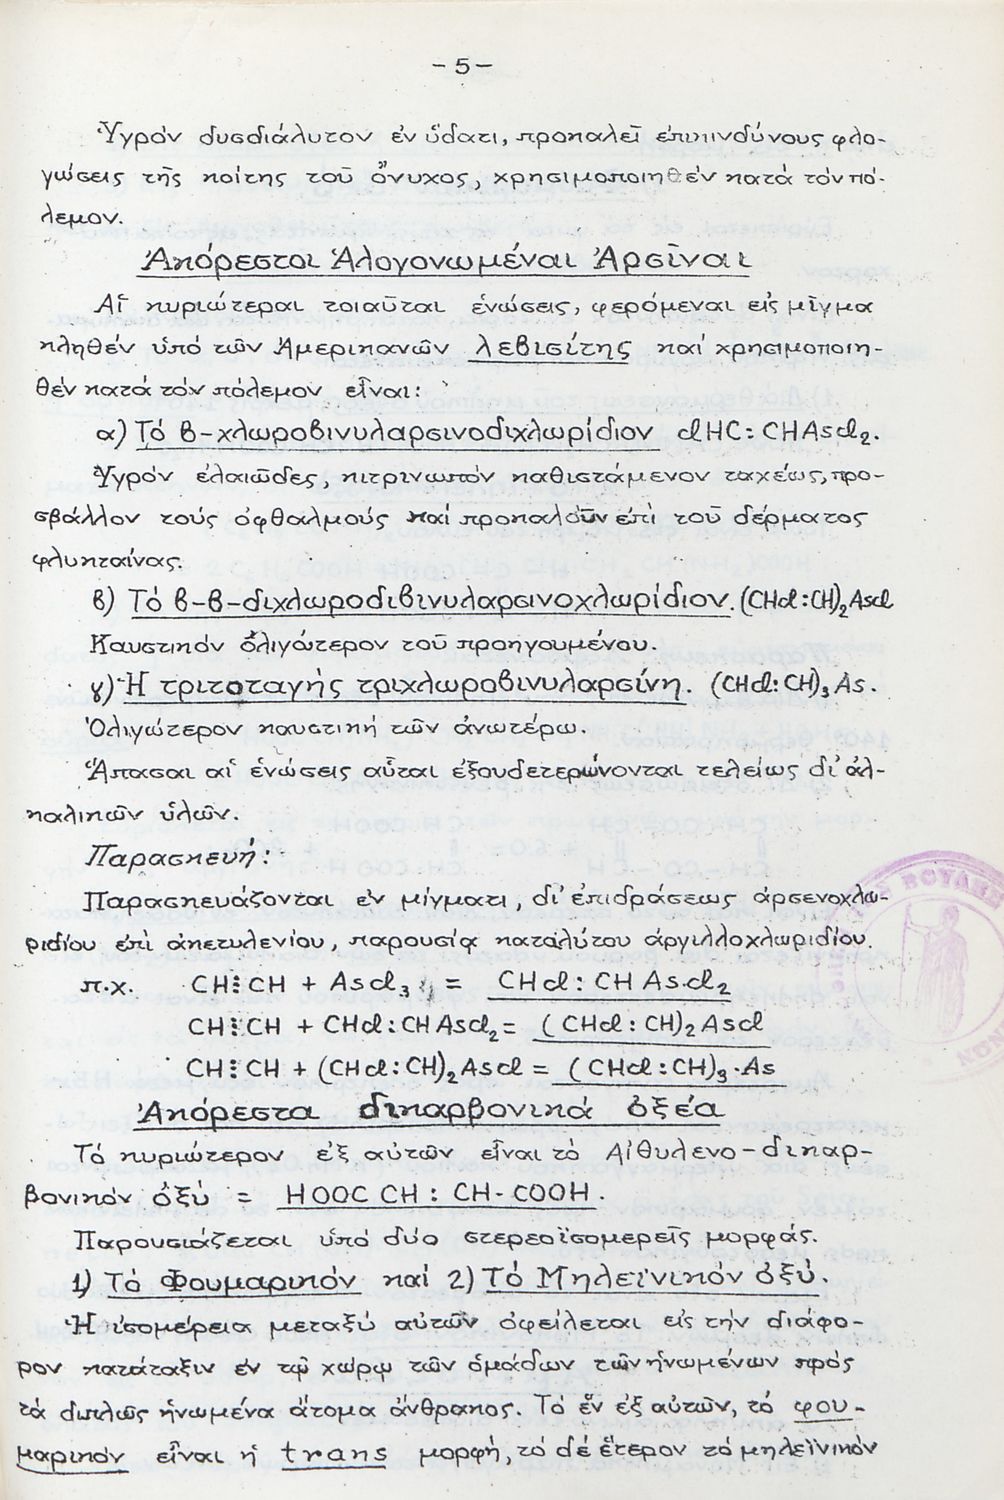 - 5 -
Ὑγρόν δυσδιάλυτον ἐν ὕδατι, προκαλεῖ ἐπικινδύνους φλο-
γώσεις τῆς κοίτης τοῦ ὄνυχος, χρησιμοποιηθέν κατά τόν πό-
λεμον.
Ἀκόρεστοι Ἁλογονωμέναι Ἀρσῖναι
Αἱ κυριώτεραι τοιαῦται ἑνώσεις, φερόμεναι εἰς μῖγμα
κληθέν ὑπό τῶν Ἀμερικανῶν λεβισίτης καί χρησιμοποιη-
θέν κατά τόν πόλεμον εἶναι:
α) Τό β-χλωροβινυλαρσινοδιχλωρίδιον ClHC:CHAsCl₂.
Ὑγρόν ἐλαιῶδες, κιτρινωπόν καθιστάμενον ταχέως, προ-
σβάλλον τούς ὀφθαλμούς καί προκαλοῦν ἐπί τοῦ δέρματος
φλυκταίνας.
β) Τό β-β-διχλωροδιβινυλαρσινοχλωρίδιον. (CHCl:CH)₂AsCl
Καυστικόν ὀλιγώτερον τοῦ προηγουμένου.
γ) Ἡ τριτοταγής τριχλωροβινυλαρσίνη. (CHCl:CH)₃As.
Ὀλιγώτερον καυστική τῶν ἀνωτέρω.
Ἅπασαι αἱ ἑνώσεις αὗται ἐξουδετερώνονται τελείως δι' ἀλ-
καλικῶν ὑλῶν.
Παρασκευή:
Παρασκευάζονται ἐν μίγματι, δι' ἐπιδράσεως ἀρσενοχλω-
ριδίου ἐπί ἀκετυλενίου, παρουσίᾳ καταλύτου ἀργιλλοχλωριδίου.
π.χ. CH⫶CH + AsCl₃ = CHCl:CHAs.Cl₂
CH⫶CH + CHCl:CHAsCl₂ = (CHCl:CH)₂AsCl
CH⫶CH + (CHCl:CH)₂AsCl = (CHCl:CH)₃·As
Ἀκόρεστα δικαρβονικά ὀξέα
Τό κυριώτερον ἐξ αὐτῶν εἶναι τό Αἰθυλενο-δικαρ-
βονικόν ὀξύ = HOOCCH:CH-COOH.
Παρουσιάζεται ὑπό δύο στερεοϊσομερεῖς μορφάς.
1) Τό Φουμαρικόν καί 2) Τό Μηλεϊνικόν ὀξύ.
Ἡ ἰσομέρεια μεταξύ αὐτῶν ὀφείλεται εἰς τήν διάφο-
ρον κατάταξιν ἐν τῷ χώρῳ τῶν ὁμάδων τῶν ἡνωμένων πρός
τά διπλῶς ἡνωμένα ἄτομα ἄνθρακος. Τό ἕν ἐξ αὐτῶν, τό φου-
μαρικόν εἶναι ἡ trans μορφή, τό δέ ἕτερον τό μηλεϊνικόν
ΒΟΥΛΗΣ